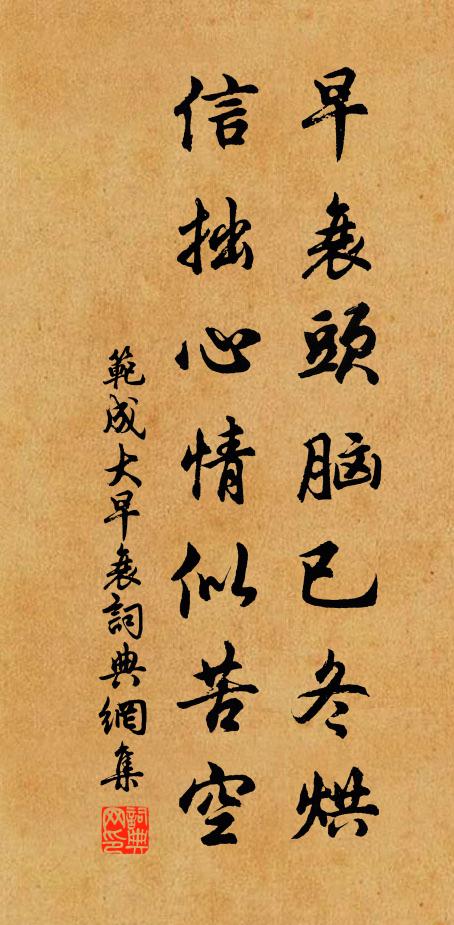 早衰頭脑已冬烘
信拙心情似苦空
範成大早衰詞典網集
詞典网印